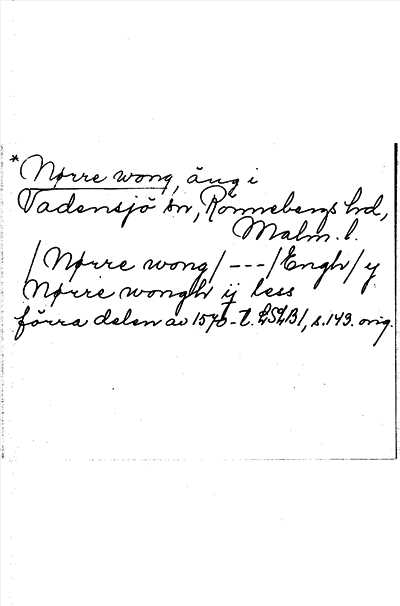 * Nørre wong, äng i
Vadensjö sn, Rönnebergs hd,
Malm. l.
/Nørre wong/ - - - /Engh/ y
Nørre wongh ij less
förra delen av 1570-t. LSLB1, s. 143. orig.